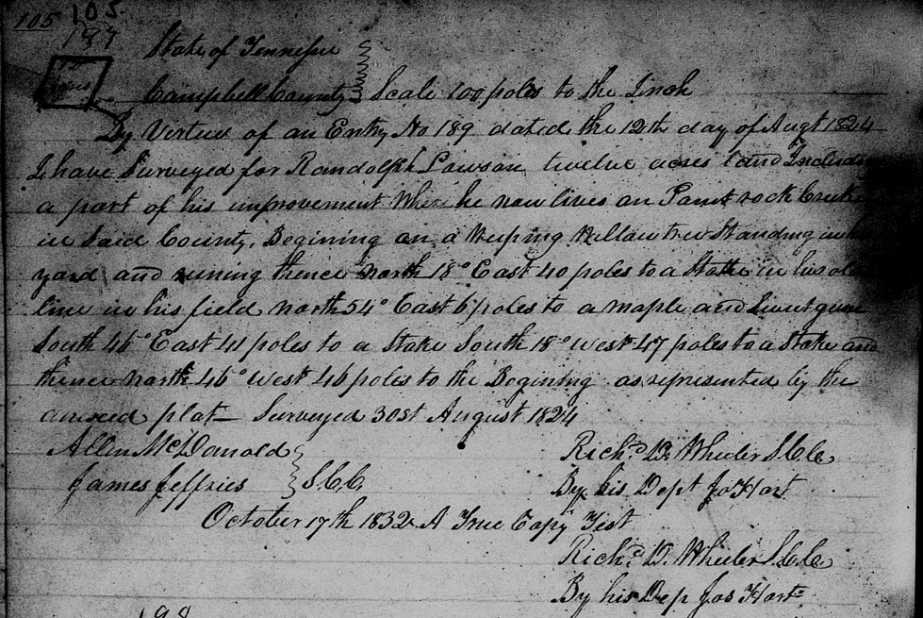 105 105
197
State of Tennessee
Campbell County Scale 100 poles to the Inch
By Virtue of an Entry No 189 dated the 12th day of Augt 1824
I have Surveyed for Randolph Lawson twelve acres land Including
a part of his improvement Where he now lives on Paint rock Creek
in Said County, Begining on a Weeping Willow tree Standing in his
yard and runing thence north 18° East 40 poles to a Stake in his old
line in his field north 54° East 6 poles to a maple and Sweet gum
South 46° East 41 poles to a Stake South 18° West 47 poles to a Stake and
thence north 46° West 46 poles to the Begining as represented by the
anexed plat— Surveyed 30st August 1824
Allen McDonald
James Jeffries S.C.C.
Richd D. Wheeler S.C.C.
By his Dept Jo Hart
October 17th 1832 A True Copy Test
Richd D. Wheeler S.C.C.
By his Dep Jos Hart
198